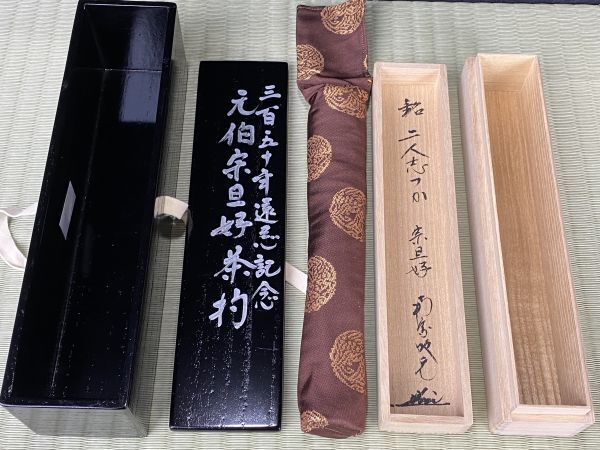 三百五十年遠忌記念
元伯宗旦好茶杓
銘 二人志つか 宗旦好